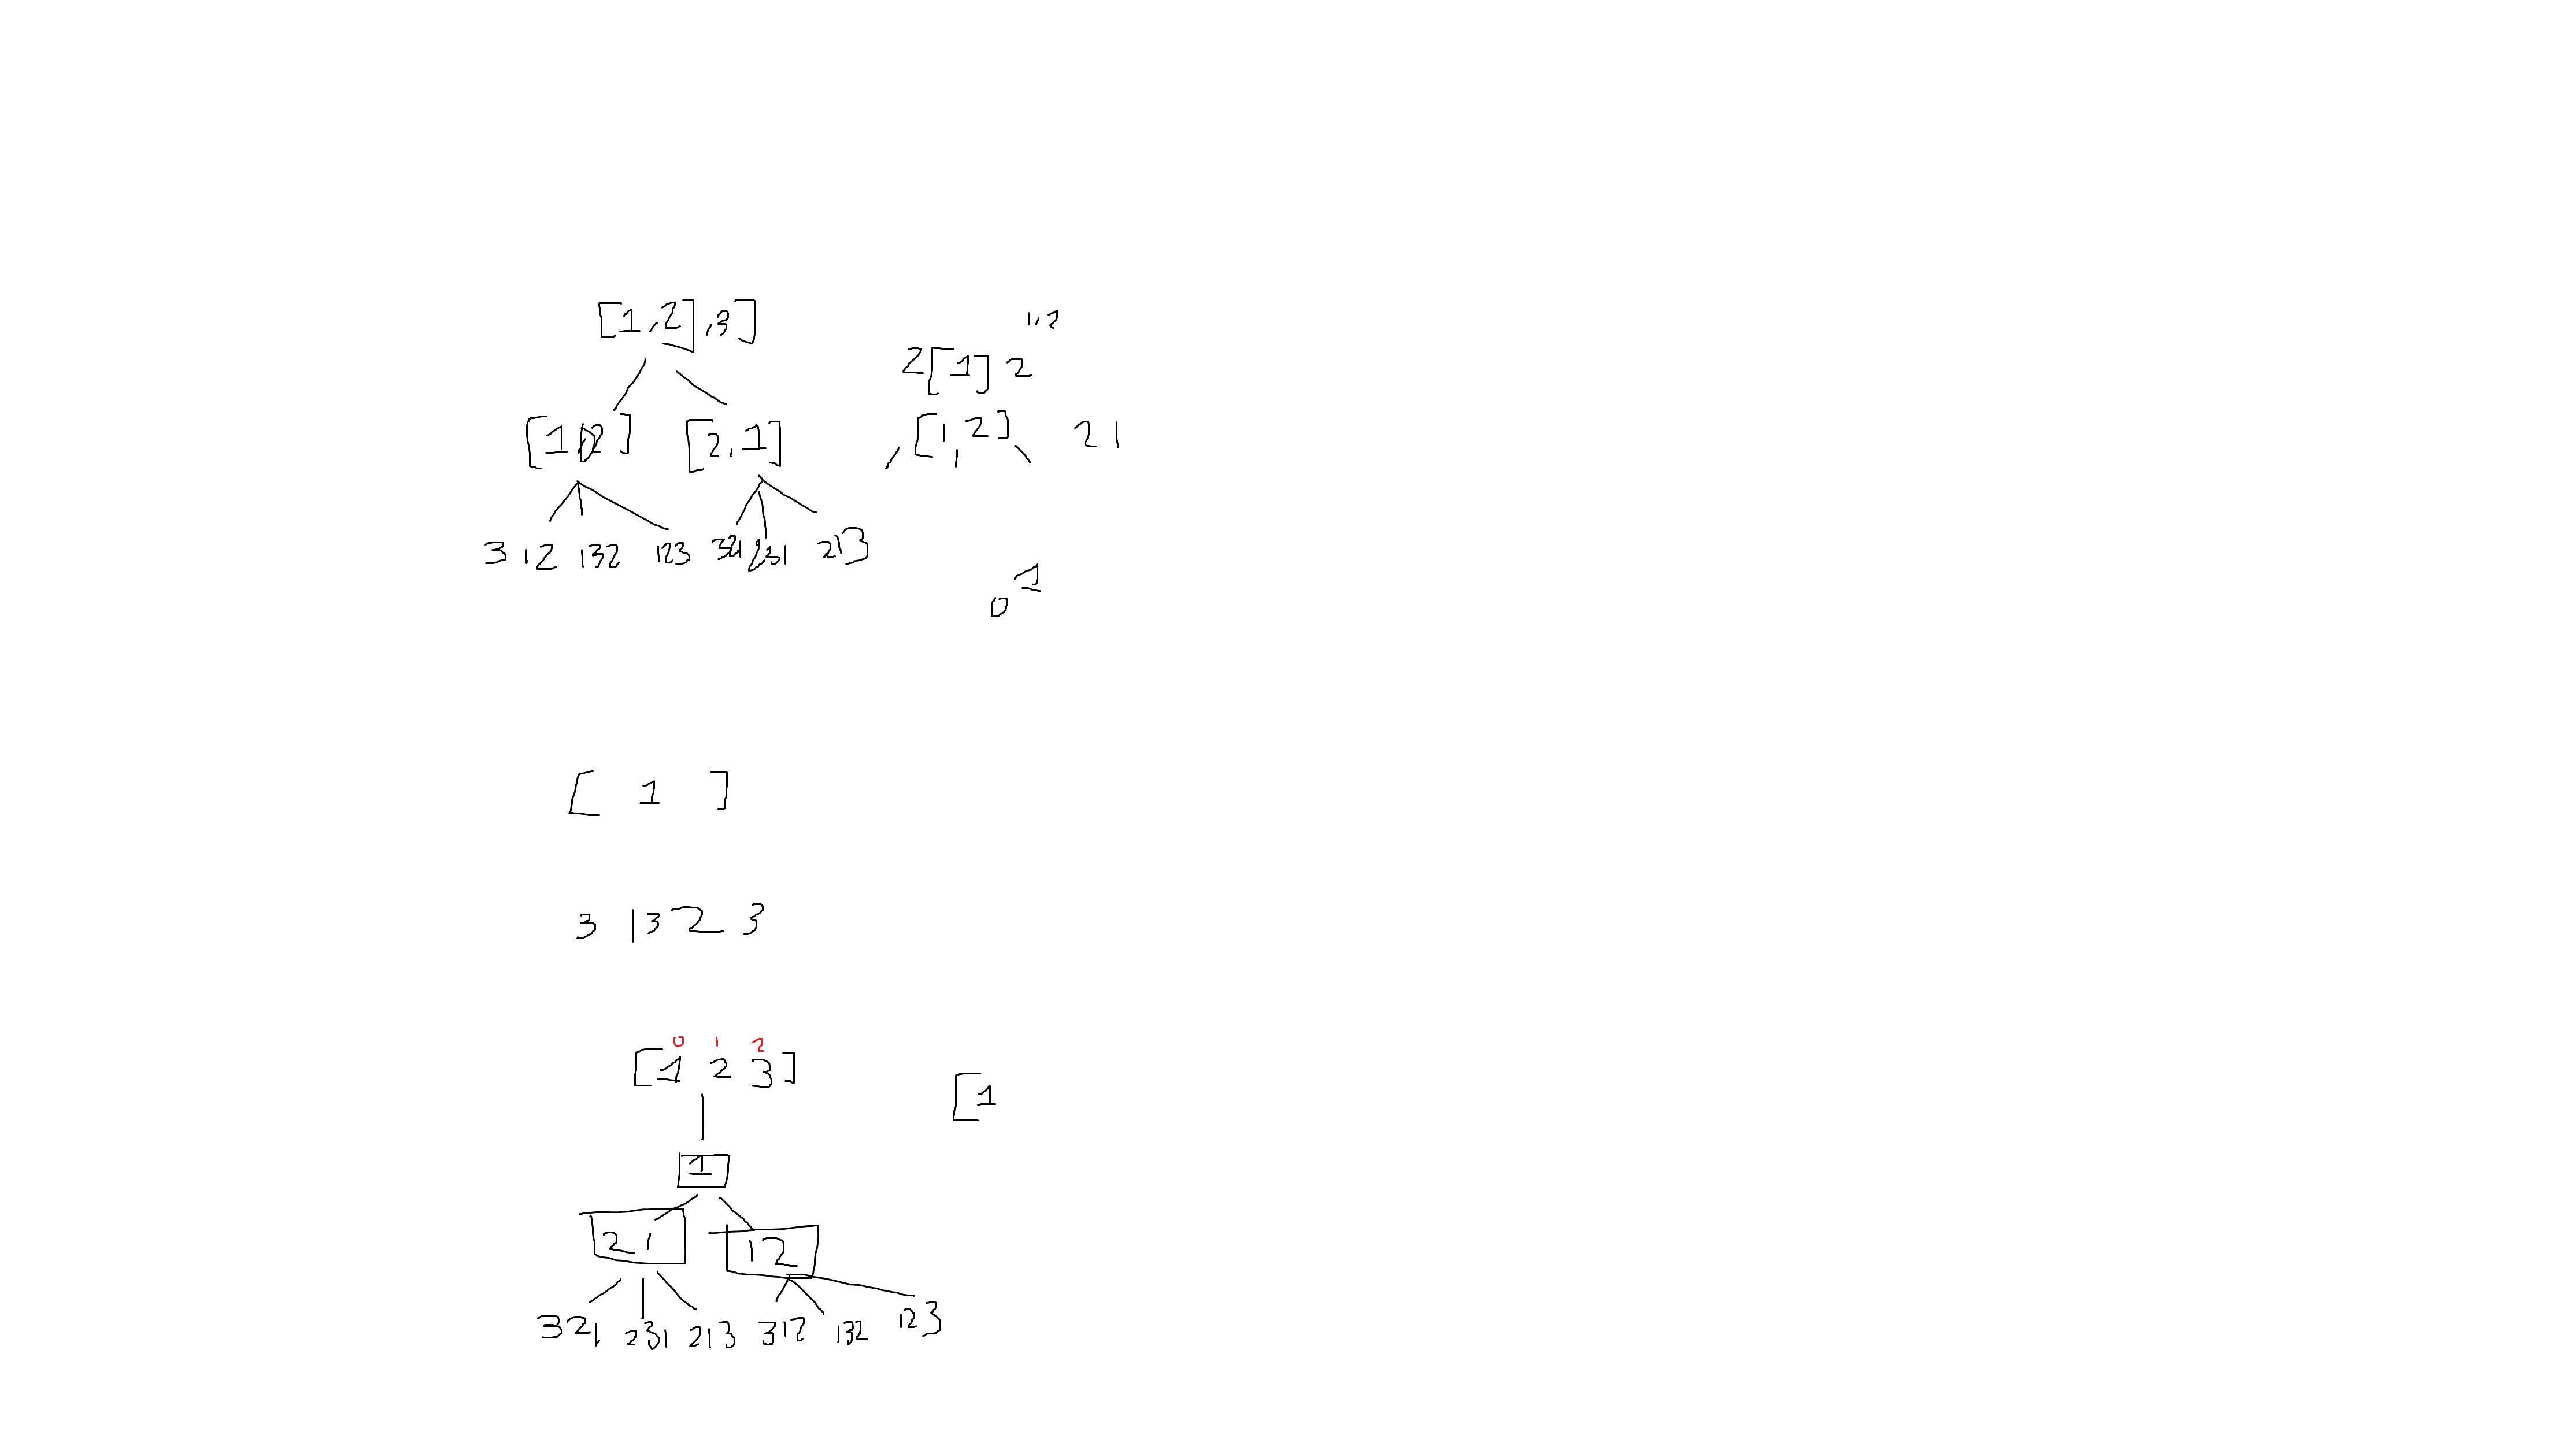 [1,2],3]
1,2
2[1] 2
[1,2] [2,1] [1,2] 21
312 132 123 321 231 213
1
0
[ 1 ]
3 13 2 3
0 1 2
[1 2 3]
[1
1
21 12
321 231 213 312 132 123